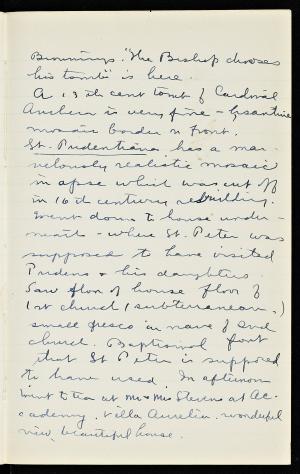 Brownings. "The Bishop chooses
his tomb" is here.
A 13th cent tomb of Cardinal
Anchera is very fine - Byzantine
mosaic border in front.
St. Prudentiana has a mar-
velously realistic mosaic
in apse which was cut off
in 16th century rebuilding.
Went down to house under-
neath - where St. Peter was
supposed to have visited
Prudens & his daughters.
Saw floor of house floor of
1st church (subterranean.)
small fresco in nave of 2nd
church. Baptismal font
that St Peter is supposed
to have used. In afternoon
went to tea at Mr & Mrs Stevens at Ac-
cademy. Villa Aurelia. wonderful
view, beautiful house.